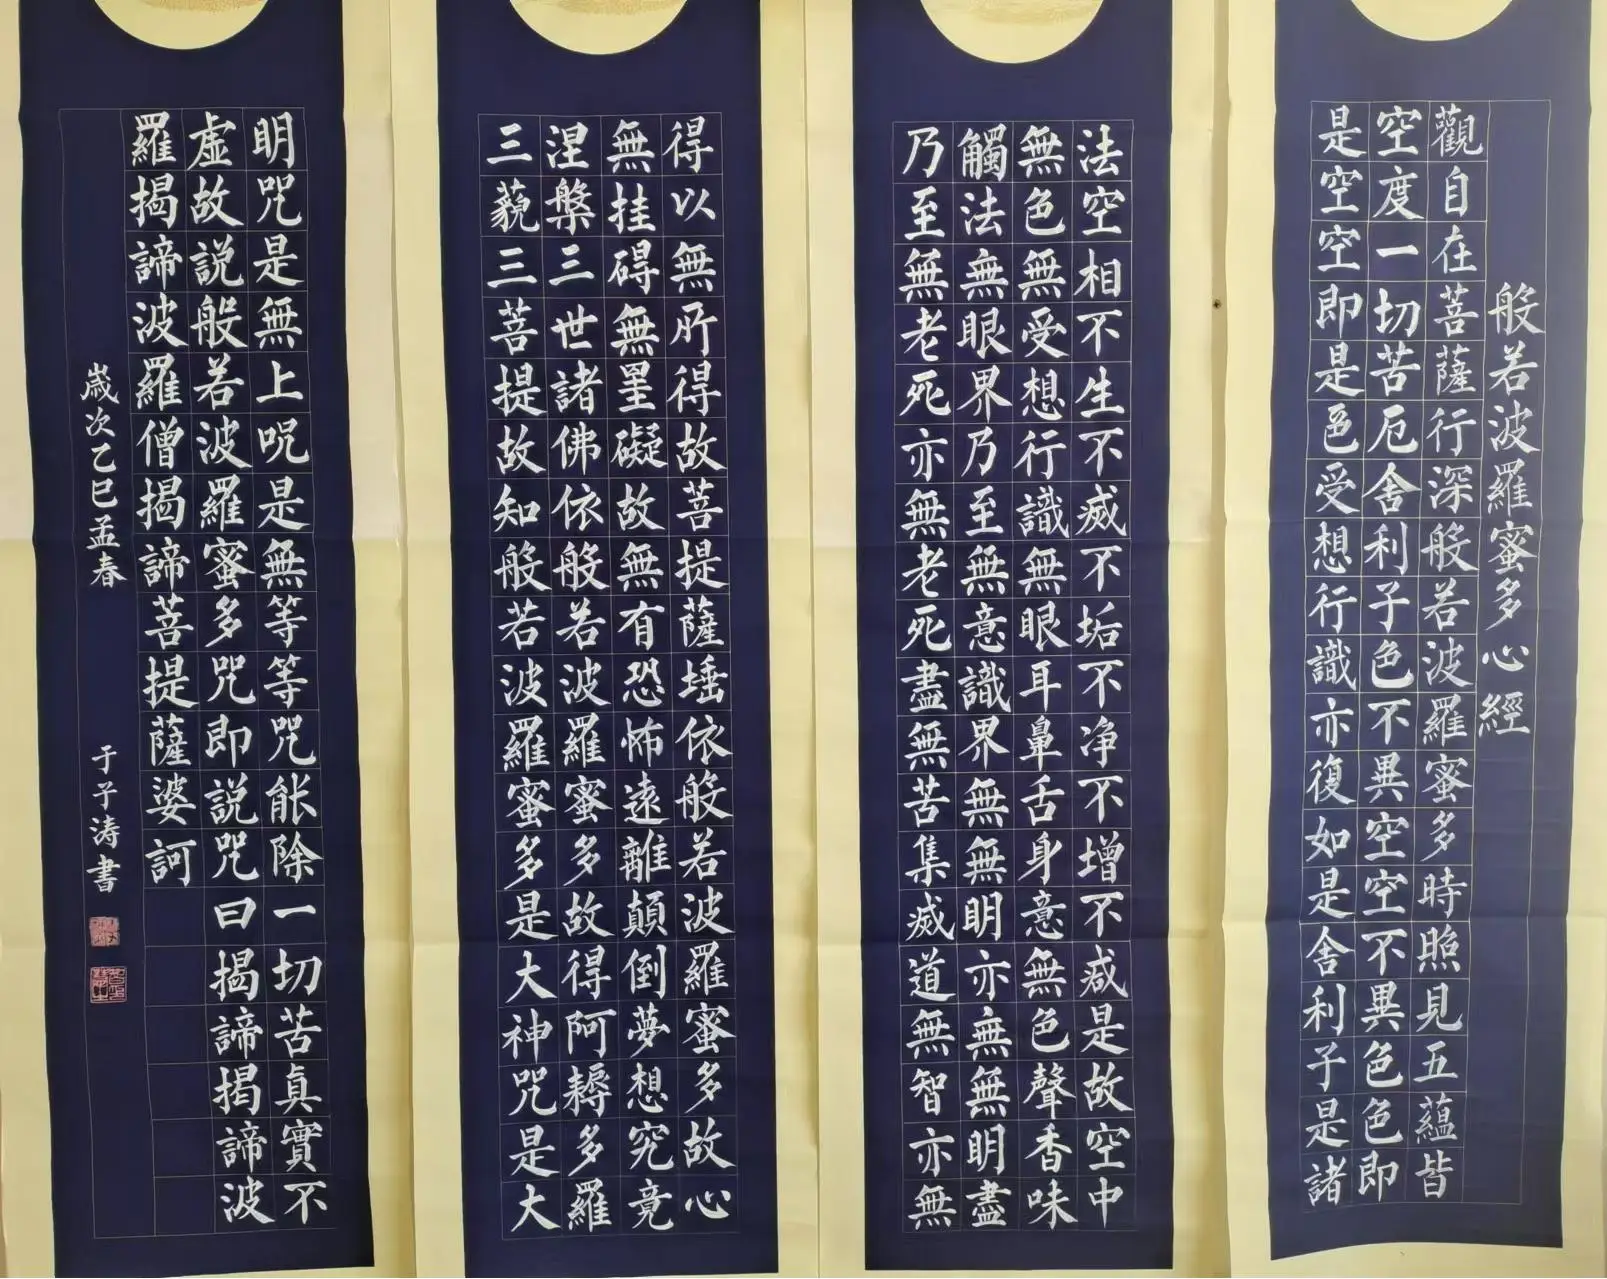 般若波羅蜜多心經
觀自在菩薩行深般若波羅蜜多時照見五蘊皆
空度一切苦厄舍利子色不異空空不異色色即
是空空即是色受想行識亦復如是舍利子是諸
法空相不生不滅不垢不净不增不減是故空中
無色無受想行識無眼耳鼻舌身意無色聲香味
觸法無眼界乃至無意識界無無明亦無無明盡
乃至無老死亦無老死盡無苦集滅道無智亦無
得以無所得故菩提薩埵依般若波羅蜜多故心
無挂碍無罣礙故無有恐怖遠離顛倒夢想究竟
涅槃三世諸佛依般若波羅蜜多故得阿耨多羅
三藐三菩提故知般若波羅蜜多是大神咒是大
明咒是無上呪是無等等咒能除一切苦真實不
虛故説般若波羅蜜多咒即説咒曰揭諦揭諦波
羅揭諦波羅僧揭諦菩提薩婆訶
歲次乙巳孟春 于子涛書